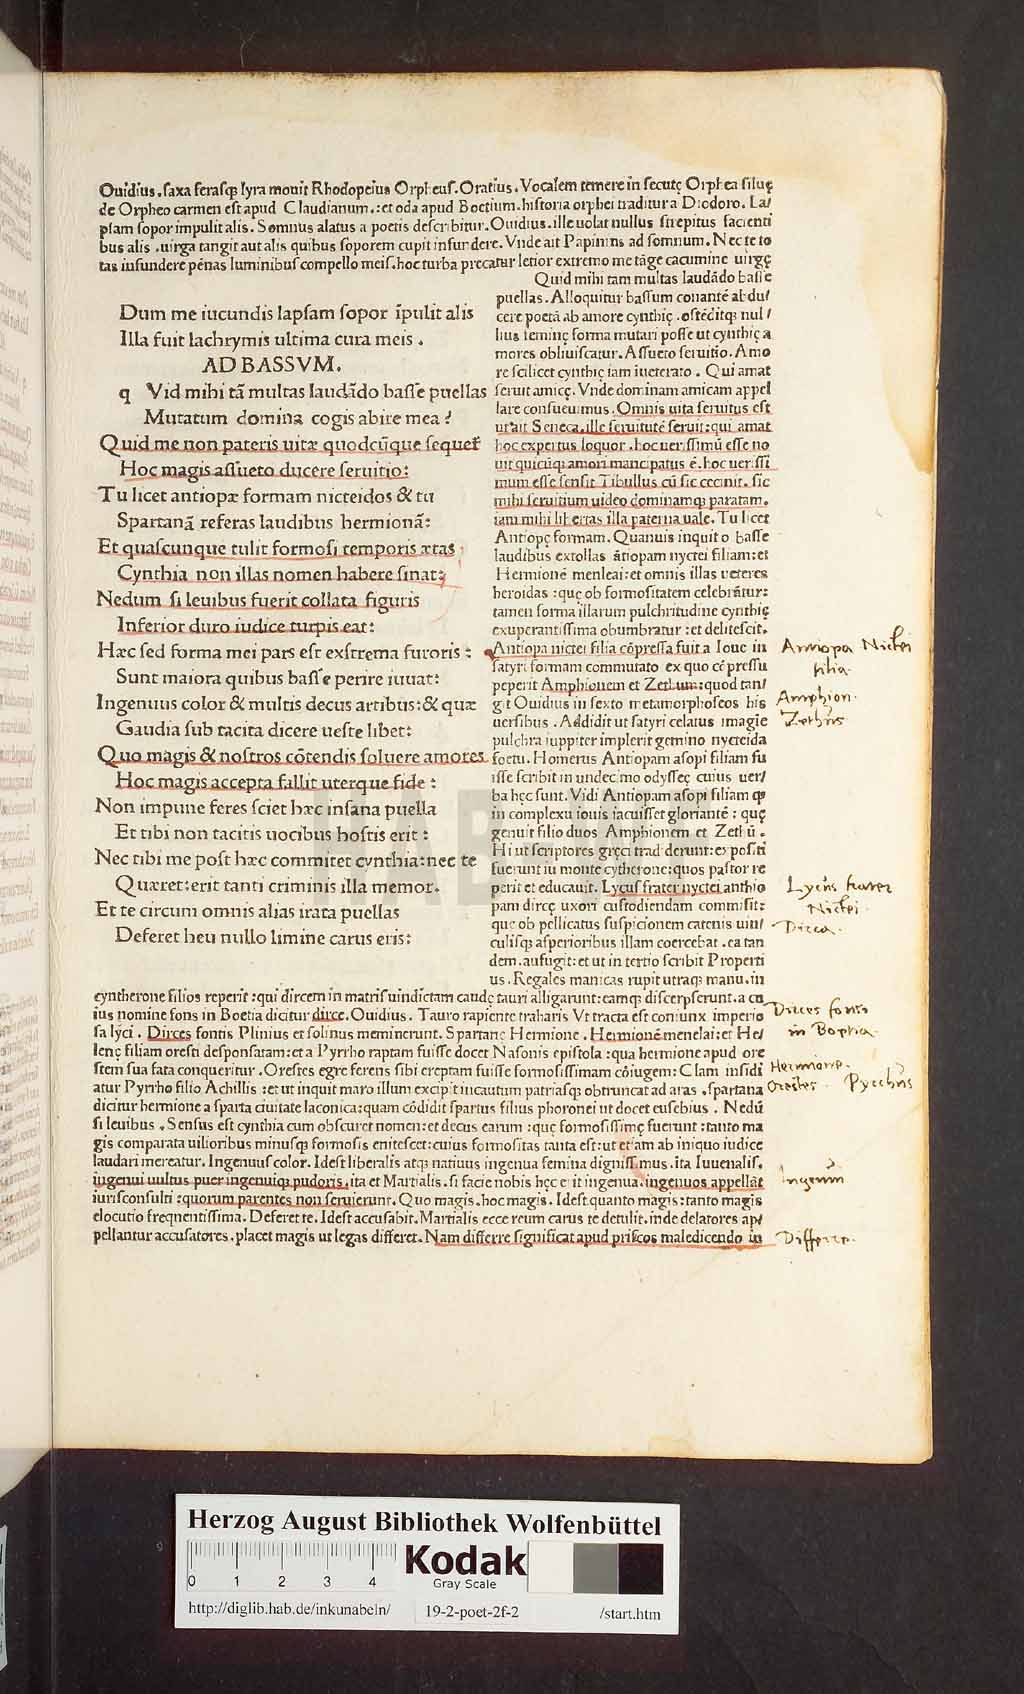 Ouidius.saxa ferasqꝫ lyra mouit Rhodopeius Orpheus. Oratius. Vocalem temere in secutę Orphea siluę
de Orpheo carmen est apud Claudianum.:et oda apud Boetium.historia orphei traditur a Diodoro. La/
psam sopor impulit alis. Somnus alatus a poetis describitur. Ouidius. ille uolat nullus strepitus facienti
bus alis .uirga tangit aut alis quibus soporem cupit infundere. Vnde ait Papinins ad somnum. Nec te to
tas infundere pēnas luminibus compello meis.hoc turba precatur letior extremo me tāge cacumine uirgę
Quid mihi tam multas laudādo basse
puellas. Alloquitur bassum conantē abdu/
cere poetā ab amore cynthię .ostēditqꝫ nul/
lius feminę forma mutari posse ut cynthię a
mores obliuiscatur. Assueto seruitio. Amo
re scilicet cynthię iam iueterato . Qui amat
seruit amicę. Vnde dominam amicam appel
lare consueuimus. Omnis uita seruitus est
ut ait Seneca.ille seruitutē seruit:qui amat
hoc expertus loquor .hoc uerissimū esse no
uit quicūqꝫ amori mancipatus ē.hoc uerissi
mum esse sensit Tibullus cū sic cecinit. sic
mihi seruitium uideo dominamqꝫ paratam.
iam mihi libertas illa paterna uale. Tu licet
Antiopę formam. Quanuis inquit o basse
laudibus extollas ātiopam nyctei filiam:et
Hermionē menleai:et omnis illas ueteres
heroidas :quę ob formositatem celebrātur:
tamen forma illarum pulchritudine cynthię
exuperantissima obumbratur :et delitescit.
Antiopa nictei filia cōpressa fuit a Ioue in
satyri formam commutato ex quo cōpressu
peperit Amphionem et Zethum:quod tan/
git Ouidius in sexto metamorphoseos his
uersibus . Addidit ut satyri celatus imagie
pulchra iuppiter implerit gemino nycteida
foetu. Homerus Antiopam asopi filiam fu
isse scribit in undecimo odysseę cuius uer/
ba hęc sunt. Vidi Antiopam asopi filiam qꝫ
in complexu iouis iacuisset gloriantē : quę
genuit filio duos Amphionem et Zethū.
Hi ut scriptores gręci tradiderunt:expositi
fuerunt iu monte cytherone:quos pastor re
perit et educauit. Lycus frater nyctei anthio
pam dircę uxori custodiendam commisit:
que ob pellicatus suspicionem catenis uin/
culisqꝫ asperioribus illam coercebat .ea tan
dem.aufugit:et ut in tertio scribit Properti
us. Regales manicas rupit utraqꝫ manu.in
Dum me iucundis lapsam sopor īpulit alis
Illa fuit lachrymis ultima cura meis .
AD BASSVM.
q Vid mihi tā multas laudādo basse puellas
Mutatum domina cogis abire mea ?
Quid me non pateris uitæ quodcūque sequet̄
Hoc magis assueto ducere seruitio:
Tu licet antiopæ formam nicteidos & tu
Spartanā referas laudibus hermionā:
Et quascunque tulit formosi temporis ætas
Cynthia non illas nomen habere sinat:
Nedum si leuibus fuerit collata figuris
Inferior duro iudice turpis eat:
Hæc sed forma mei pars est exstrema furoris :
Sunt maiora quibus basse perire iuuat:
Ingenuus color & multis decus artibus:& quæ
Gaudia sub tacita dicere ueste libet:
Quo magis & nostros cōtendis soluere amores
Hoc magis accepta fallit uterque fide :
Non impune feres sciet hæc insana puella
Et tibi non tacitis uocibus hostis erit :
Nec tibi me post hæc commitet cynthia:nec te
Quæret:erit tanti criminis illa memor.
Et te circum omnis alias irata puellas
Deferet heu nullo limine carus eris:
cyntherone filios reperit :qui dircem in matris uindictam caudę tauri alligarunt:eamqꝫ discerpserunt.a cu
ius nomine fons in Boetia dicitur dirce. Ouidius. Tauro rapiente traharis Vt tracta est coniunx imperio
sa lyci . Dirces fontis Plinius et solinus meminerunt. Spartanę Hermione . Hermionē menelai:et He/
lenę filiam oresti desponsatam:et a Pyrrho raptam fuisse docet Nasonis epistola :qua hermione apud ore
stem sua fata conqueritur . Orestes egre ferens sibi ereptam fuisse formosissimam cōiugem: Clam insidi
atur Pyrrho filio Achillis :et ut inquit maro illum excipit incautum patriasqꝫ obtruncat ad aras .spartana
dicitur hermione a sparta ciuitate laconica:quam cōdidit spartus filius phoronei ut docet eusebius . Nedū
si leuibus . Sensus est cynthia cum obscuret nomen:et decus earum :quę formosissimę fuerunt :tanto ma
gis comparata uilioribus minusqꝫ formosis enitescet:cuius formositas tanta est:ut etiam ab iniquo iudice
laudari mereatur. Ingenuus color. Idest liberalis atqꝫ natiuus ingenua femina dignissimus .ita Iuuenalis.
iugenui uultus puer ingenuiqꝫ pudoris.ita et Martialis .si facie nobis hęc erit ingenua.ingenuos appellāt
iurisconsulti :quorum parentes non seruierunt. Quo magis .hoc magis . Idest quanto magis:tanto magis
elocutio freqnentissima. Deferet te. Idest accusabit. Martialis ecce reum carus te detulit.inde delatores ap/
pellantur accusatores.placet magis ut legas differet. Nam differre significat apud priscos maledicendo in
Antiopa Nictei
filia.
Amphion.
Zethus
Lycus frater
Nictei.
Dircea.
Dirces fons
in Boetia.
Hermione.
Orestes. Pyrrhus
Ingenuū
Differre.
HAB
Herzog August Bibliothek Wolfenbüttel
0 1 2 3 4
Kodak
Gray Scale
http://diglib.hab.de/inkunabeln/ 19-2-poet-2f-2 /start.htm